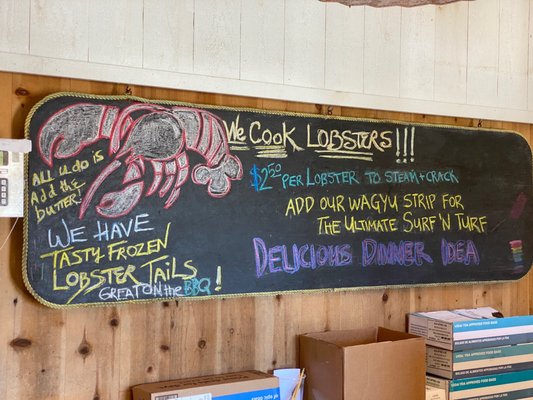 We Cook Lobsters!!!
$2.50 per Lobster to steam + crack
Add our Wagyu Strip for
the Ultimate Surf 'N Turf
Delicious Dinner Idea
All u do is
Add the
butter!
We Have
Tasty Frozen
Lobster Tails
Great on the BBQ!